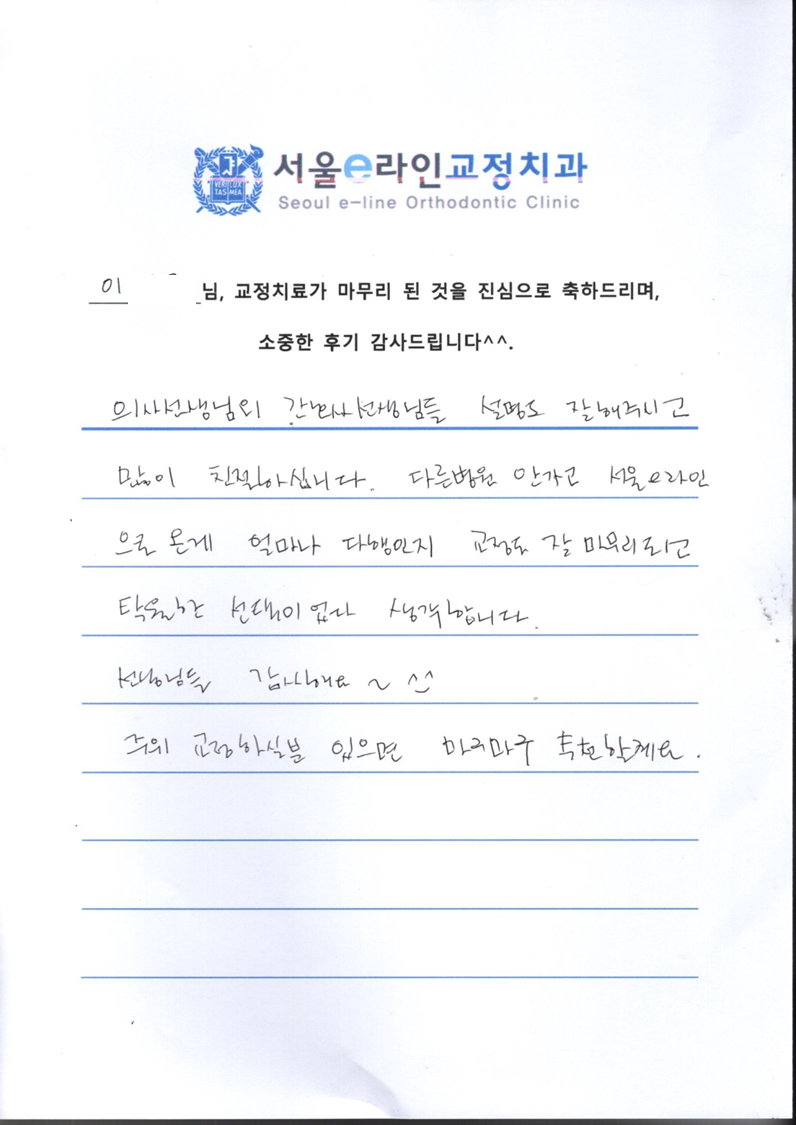 VERI LUX
TAS MEA
서울e라인교정치과
Seoul e-line Orthodontic Clinic
이 님, 교정치료가 마무리 된 것을 진심으로 축하드리며,
소중한 후기 감사드립니다^^.
의사선생님외 간호사선생님들 설명도 잘해주시고
많이 친절하십니다. 다른병원 안가고 서울e라인
으로 온게 얼마나 다행인지 교정도 잘 마무리되고
탁월한 선택이였다 생각합니다.
선생님들 감사해요~ ^^
주위 교정하실분 있으면 마구마구 추천할게요.